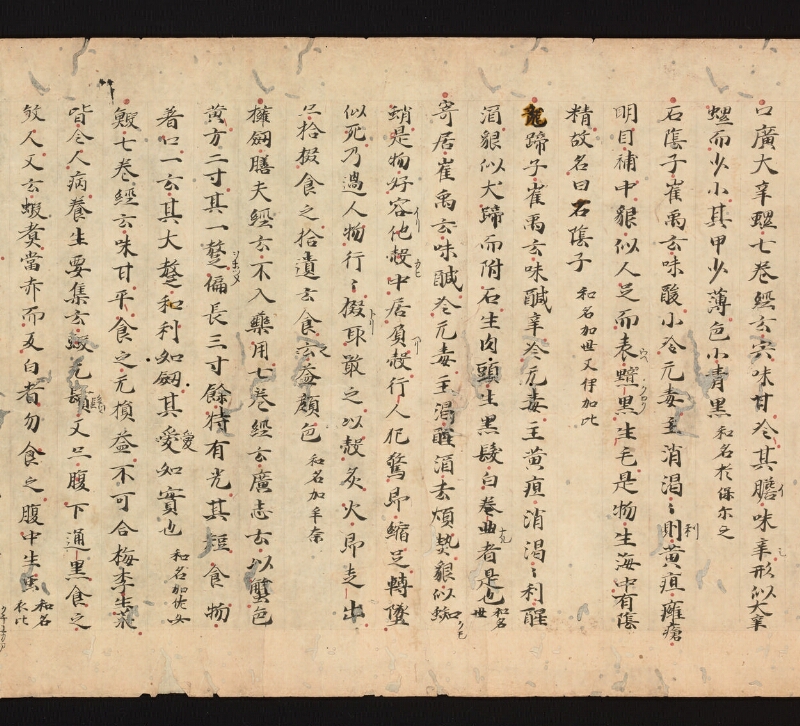 口廣大辛螺七巻經云宍味甘冷其膽味辛形似大辛
螺而少小其甲少薄色小青黒和名於保尓之
石蔭子崔禹云味酸小冷无毒主消渇〻利黄疸癰瘡
明目補中貌似人足而表黒生毛是物生海中有蔭
精故名曰石蔭子 和名加世又伊加比
龍蹄子崔禹云味醎辛冷无毒主黄疸消渇〻利醒
酒貌似犬蹄而附石生肉頭生黒髪白巻曲者是也 和名世
寄居崔禹云味醎冷无毒主渇醒酒去煩熱貌似蜘
蛸是物好容他殻中居負殻行人犯驚即縮足轉墮
似死乃過人物行〻掇取散之以殻炙火即走出
只拾掇食之拾遺云食之益顔色 和名加牟奈
擁劔膳夫經云不入藥用七巻經云廣志云以蟹色
黄方二寸其一螯偏長三寸餘特有光其短食物
著口一云其大螯和利如劔其愛如寳也 和名加佐女
鰕七巻經云味甘平食之无損益不可合梅李生菜
皆令人病養生要集云鰕无鬚又亡腹下通黒食之
煞人又云蝦煮當赤而反白者勿食之腹中生虫 和名衣比